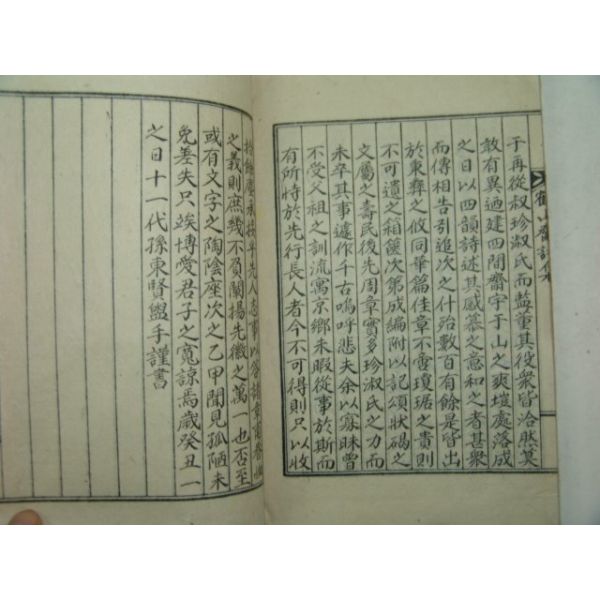 于再從叔珍淑氏而監董其役衆皆洽然莫
敢有異迺建四間齋宇于山之爽塏處落成
之日以四韻詩述其感慕之意和之者甚衆
而傳相告引追次之什殆數百有餘是皆出
於秉彝之攸同華篇佳章不啻瓊琚之貴則
不可遺之箱篋次第成編附以記頌狀碣之
文屬之壽民後先周章實多珍淑氏之力而
未卒其事遽作千古嗚呼悲夫余以寡昧曾
不受父祖之訓流寓京鄉未暇從事於斯而
有所恃於先行長人者今不可得則只以收
拾
之義則庶幾不負闡揚先徽之萬一也否至
或有文字之陶陰座次之乙甲聞見孤陋未
免差失只竢博愛君子之寬諒焉歲癸丑一
之日十一代孫東賢盥手謹書